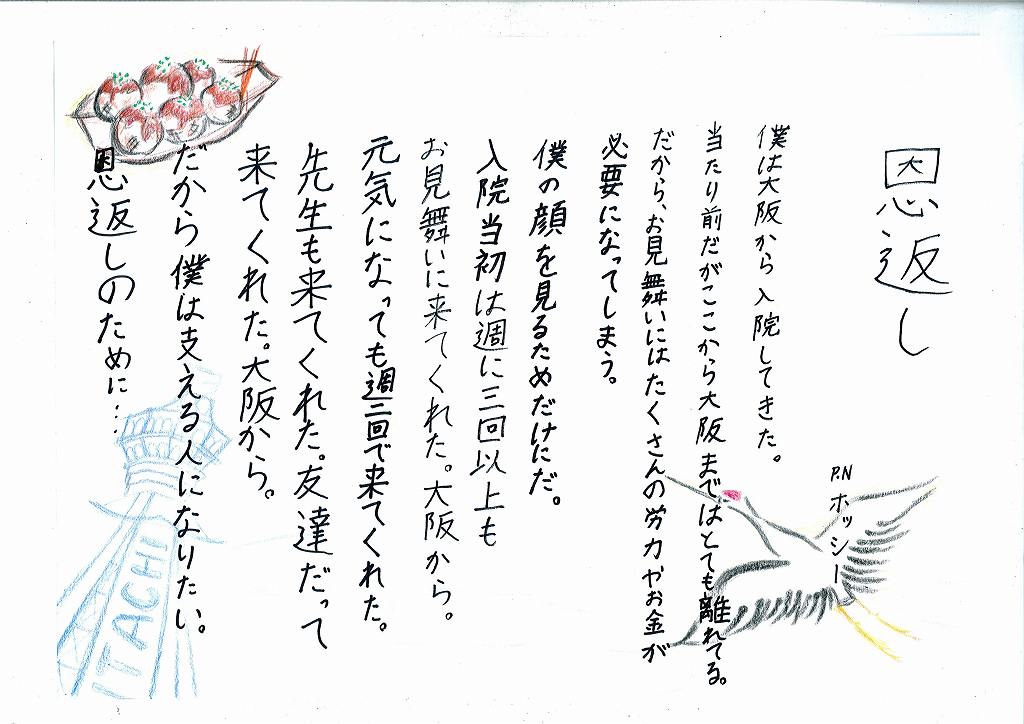 恩返し
P.N ホッシー
僕は大阪から入院してきた。
当たり前だがここから大阪まではとても離れてる。
だから、お見舞いにはたくさんの労力やお金が
必要になってしまう。
僕の顔を見るためだけにだ。
入院当初は週に三回以上も
お見舞いに来てくれた。大阪から。
元気になっても週二回で来てくれた。
先生も来てくれた。友達だって
来てくれた。大阪から。
だから僕は支える人になりたい。
恩返しのために…
ITACHI